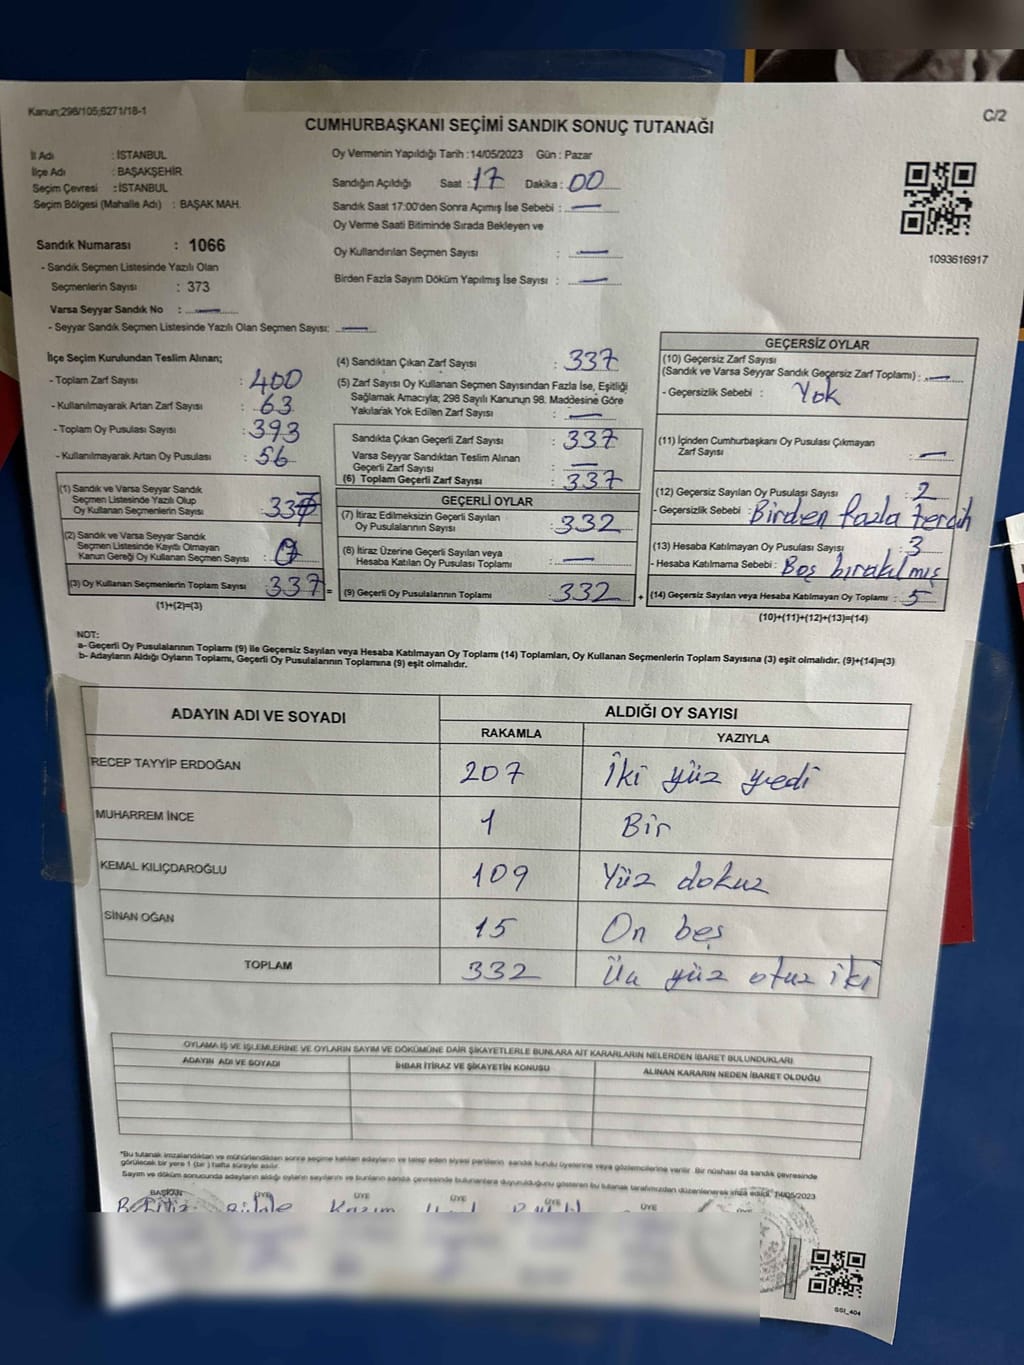 Kanun;298/105;6271/18-1
C/2
CUMHURBAŞKANI SEÇİMİ SANDIK SONUÇ TUTANAĞI
İl Adı : İSTANBUL
İlçe Adı : BAŞAKŞEHİR
Seçim Çevresi : İSTANBUL
Seçim Bölgesi (Mahalle Adı) : BAŞAK MAH.
Sandık Numarası : 1066
- Sandık Seçmen Listesinde Yazılı Olan
Seçmenlerin Sayısı : 373
Varsa Seyyar Sandık No : —
- Seyyar Sandık Seçmen Listesinde Yazılı Olan Seçmen Sayısı: —
Oy Vermenin Yapıldığı Tarih :14/05/2023 Gün : Pazar
Sandığın Açıldığı Saat : 17 Dakika : 00
Sandık Saat 17:00'den Sonra Açımış İse Sebebi : —
Oy Verme Saati Bitiminde Sırada Bekleyen ve
Oy Kullandırılan Seçmen Sayısı : —
Birden Fazla Sayım Döküm Yapılmış İse Sayısı : —
1093616917
İlçe Seçim Kurulundan Teslim Alınan;
- Toplam Zarf Sayısı : 400
- Kullanılmayarak Artan Zarf Sayısı : 63
- Toplam Oy Pusulası Sayısı : 393
- Kullanılmayarak Artan Oy Pusulası : 56
(1) Sandık ve Varsa Seyyar Sandık
Seçmen Listesinde Yazılı Olup
Oy Kullanan Seçmenlerin Sayısı : 337
(2) Sandık ve Varsa Seyyar Sandık
Seçmen Listesinde Kayıtlı Olmayan
Kanun Gereği Oy Kullanan Seçmen Sayısı : 0
(3) Oy Kullanan Seçmenlerin Toplam Sayısı : 337 =
(1)+(2)=(3)
(4) Sandıktan Çıkan Zarf Sayısı : 337
(5) Zarf Sayısı Oy Kullanan Seçmen Sayısından Fazla İse, Eşitliği
Sağlamak Amacıyla; 298 Sayılı Kanunun 98. Maddesine Göre
Yakılarak Yok Edilen Zarf Sayısı : —
Sandıkta Çıkan Geçerli Zarf Sayısı : 337
Varsa Seyyar Sandıktan Teslim Alınan
Geçerli Zarf Sayısı : —
(6) Toplam Geçerli Zarf Sayısı : 337
GEÇERLİ OYLAR
(7) İtiraz Edilmeksizin Geçerli Sayılan
Oy Pusulalarının Sayısı : 332
(8) İtiraz Üzerine Geçerli Sayılan veya
Hesaba Katılan Oy Pusulası Toplamı : —
(9) Geçerli Oy Pusulalarının Toplamı : 332 +
GEÇERSİZ OYLAR
(10) Geçersiz Zarf Sayısı
(Sandık ve Varsa Seyyar Sandık Geçersiz Zarf Toplamı) : —
- Geçersizlik Sebebi : Yok
(11) İçinden Cumhurbaşkanı Oy Pusulası Çıkmayan
Zarf Sayısı : —
(12) Geçersiz Sayılan Oy Pusulası Sayısı : 2
- Geçersizlik Sebebi : Birden fazla tercih
(13) Hesaba Katılmayan Oy Pusulası Sayısı : 3
- Hesaba Katılmama Sebebi : Boş bırakılmış
(14) Geçersiz Sayılan veya Hesaba Katılmayan Oy Toplamı : 5
(10)+(11)+(12)+(13)=(14)
NOT:
a- Geçerli Oy Pusulalarının Toplamı (9) ile Geçersiz Sayılan veya Hesaba Katılmayan Oy Toplamı (14) Toplamları, Oy Kullanan Seçmenlerin Toplam Sayısına (3) eşit olmalıdır. (9)+(14)=(3)
b- Adayların Aldığı Oyların Toplamı, Geçerli Oy Pusulalarının Toplamına (9) eşit olmalıdır.
ADAYIN ADI VE SOYADI ALDIĞI OY SAYISI
RAKAMLA YAZIYLA
RECEP TAYYİP ERDOĞAN 207 İki yüz yedi
MUHARREM İNCE 1 Bir
KEMAL KILIÇDAROĞLU 109 Yüz dokuz
SİNAN OĞAN 15 On beş
TOPLAM 332 Üç yüz otuz iki
OYLAMA İŞ VE İŞLEMLERİNE VE OYLARIN SAYIM VE DÖKÜMÜNE DAİR ŞİKAYETLERLE BUNLARA AİT KARARLARIN NELERDEN İBARET BULUNDUKLARI
ADAYIN ADI VE SOYADI İHBAR İTİRAZ VE ŞİKAYETİN KONUSU ALINAN KARARIN NEDEN İBARET OLDUĞU
*Bu tutanak imzalandıktan ve mühürlendikten sonra seçime katılan adayların ve talep eden siyasi partilerin sandık kurulu üyelerine veya gözlemcilerine verilir. Bir nüshası da sandık çevresinde
görülecek bir yere 1 (bir) hafta süreyle asılır.
Sayım ve döküm sonucunda adayların aldığı oyların sayılarını ve bunların sandık çevresinde bulunanlara duyurulduğunu gösteren bu tutanak tarafımızdan düzenlenerek imza edildi. 14/05/2023
BAŞKAN ÜYE ÜYE ÜYE ÜYE ÜYE ÜYE
Kazım